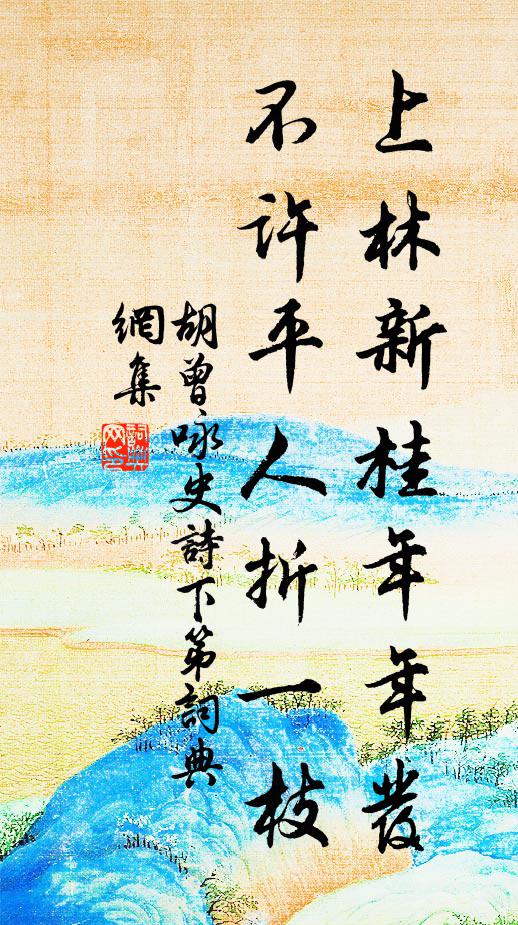 上林新桂年年發
不許平人折一枝
胡曾咏史詩下第詞典
網集